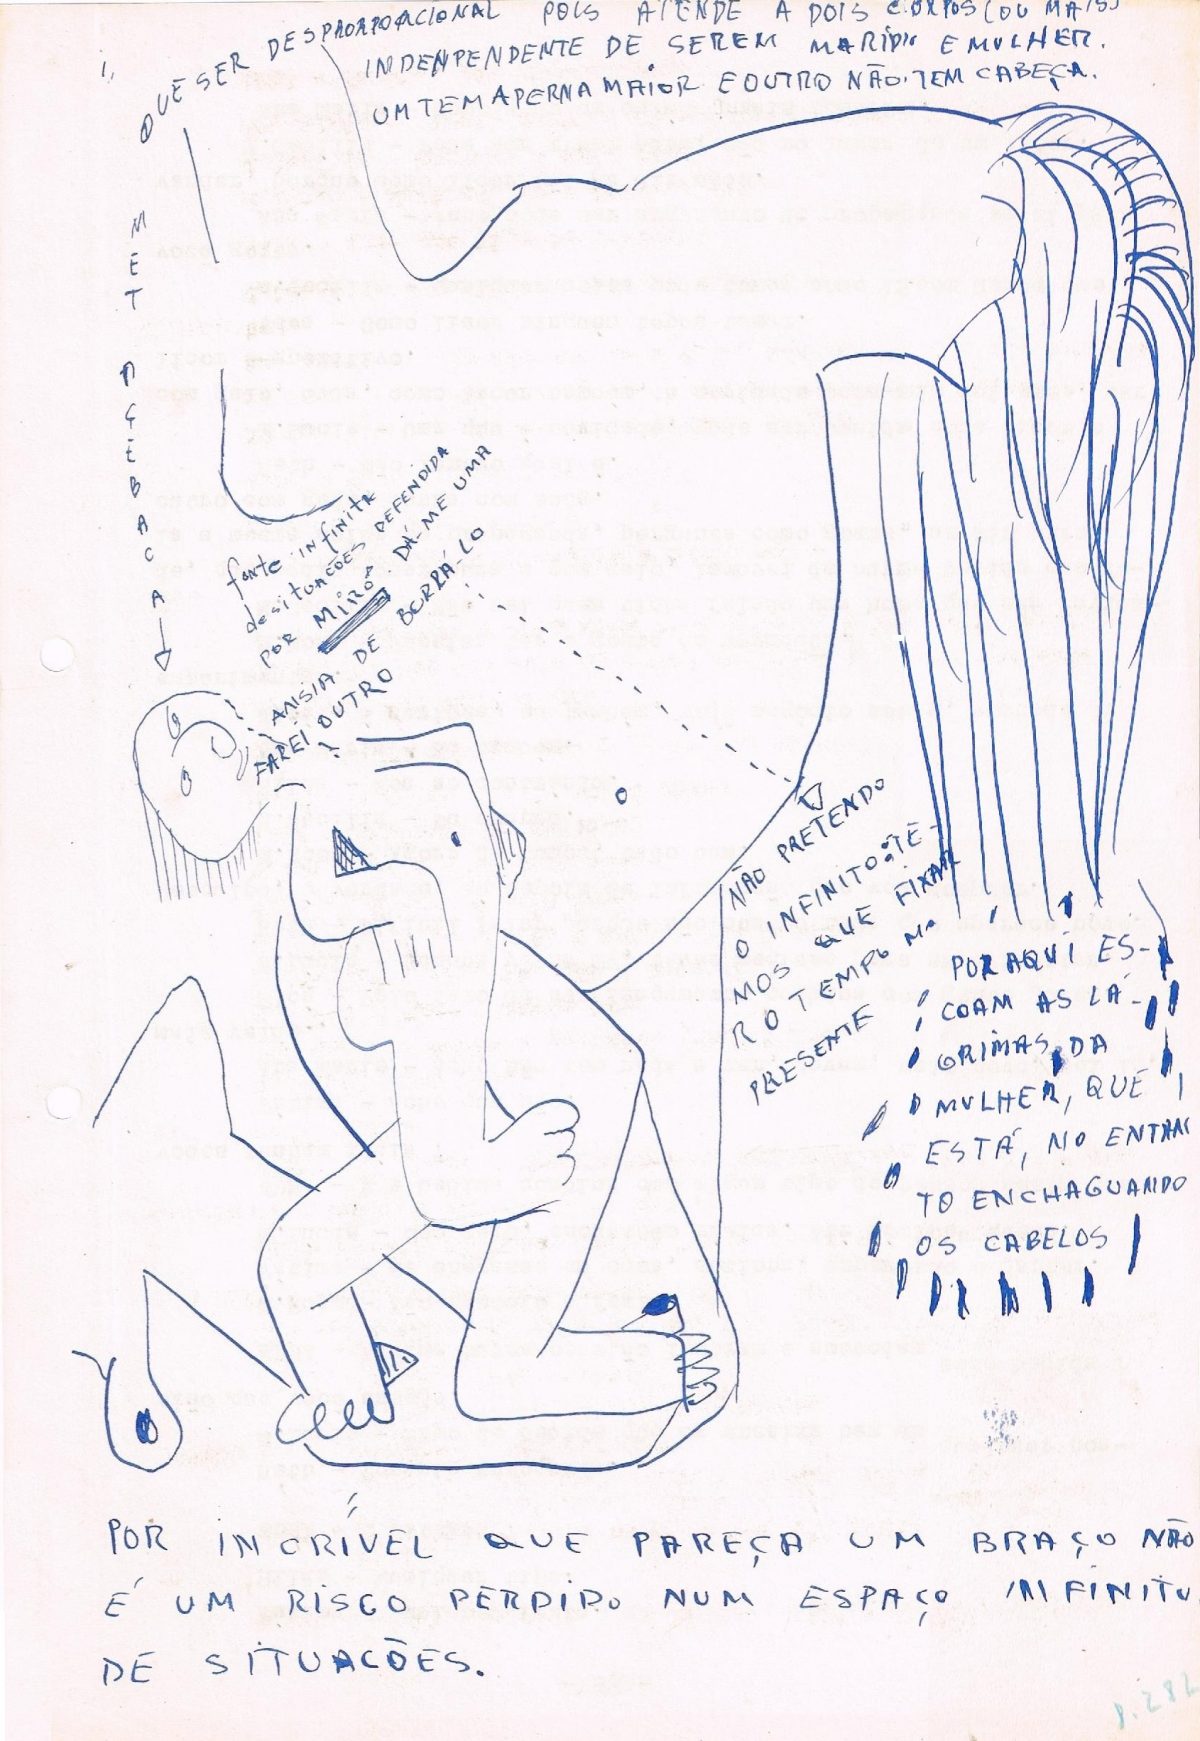 1,,
A CABEÇA TEM
QUE SER DESPROPORCIONAL POIS ATENDE A DOIS CORPOS (OU MAIS)
INDENPENDENTE DE SEREM MARIDO E MULHER.
UM TEM A PERNA MAIOR E OUTRO NÃO TEM CABEÇA.
fonte infinita
de situações DEFENDIDA
POR MIRÓ, DÁ-ME UMA
ANSIA DE BORRÁ-LO
FAREI OUTRO
NÃO PRETENDO
O INFINITO: TE-
MOS QUE FIXAR
O TEMPO NO
PRESENTE
POR AQUI ES-
COAM AS LÁ-
GRIMAS DA
MULHER, QUE
ESTÁ, NO ENTAN
TO ENCHAGUANDO
OS CABELOS
POR INCRÍVEL QUE PAREÇA UM BRAÇO NÃO
É UM RISCO PERDIDO NUM ESPAÇO INFINITO
DE SITUAÇÕES.
p.282